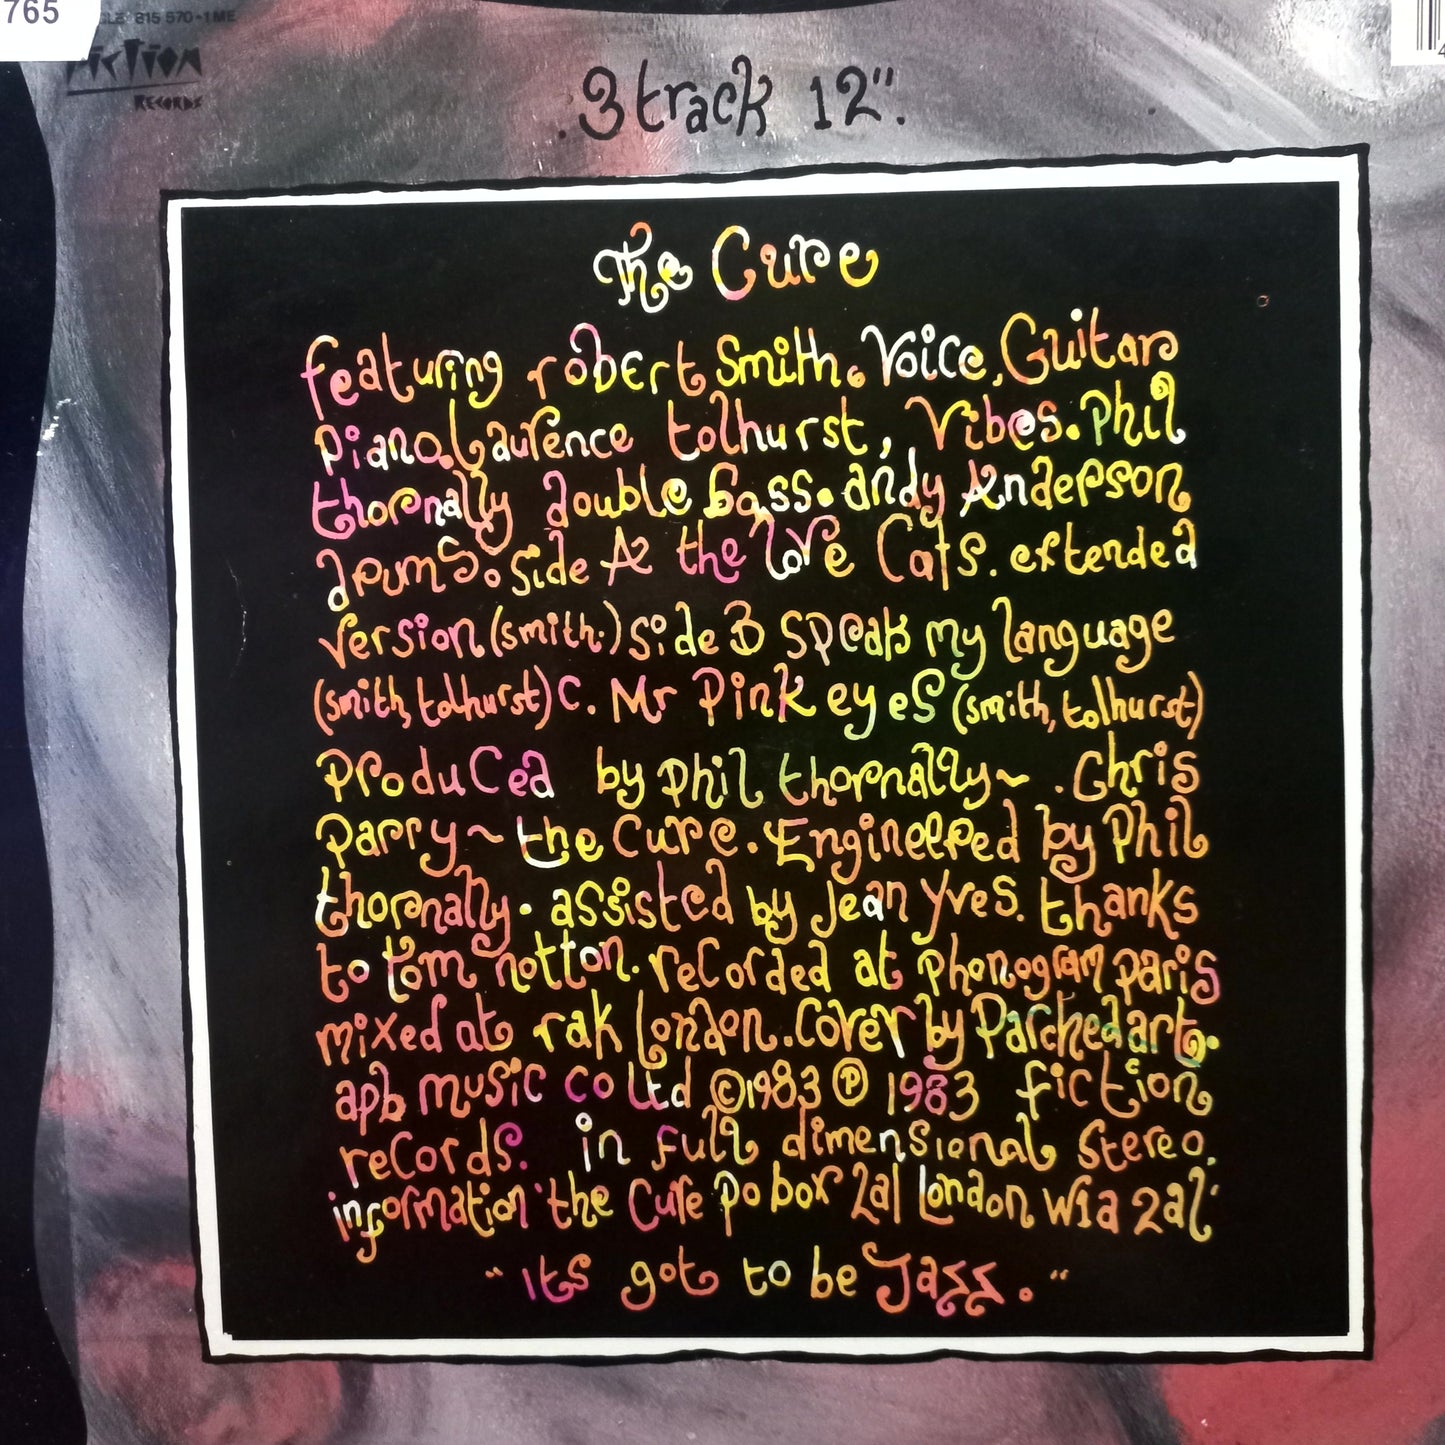 765
815 570-1 ME
Fiction
Records
.3 track 12".
The Cure
featuring robert Smith. Voice, Guitar
piano. Laurence tolhurst, Vibes. Phil
thornally double bass. andy Anderson
drums. Side A2 the love Cats. extended
version (smith.) side B speak my language
(smith, tolhurst) C. Mr Pink eyes (smith, tolhurst)
Produced by Phil thornally~ . Chris
Parry ~ the cure. Engineered by Phil
thornally. assisted by Jean Yves. thanks
to tom notton. recorded at phonogram paris
mixed at rak london. Cover by Parched art.
apb music co Ltd ©1983 ℗ 1983 fiction
records. in full dimensional stereo.
information the Cure po box 2al London W1a 2al.
"Its got to be Jazz."